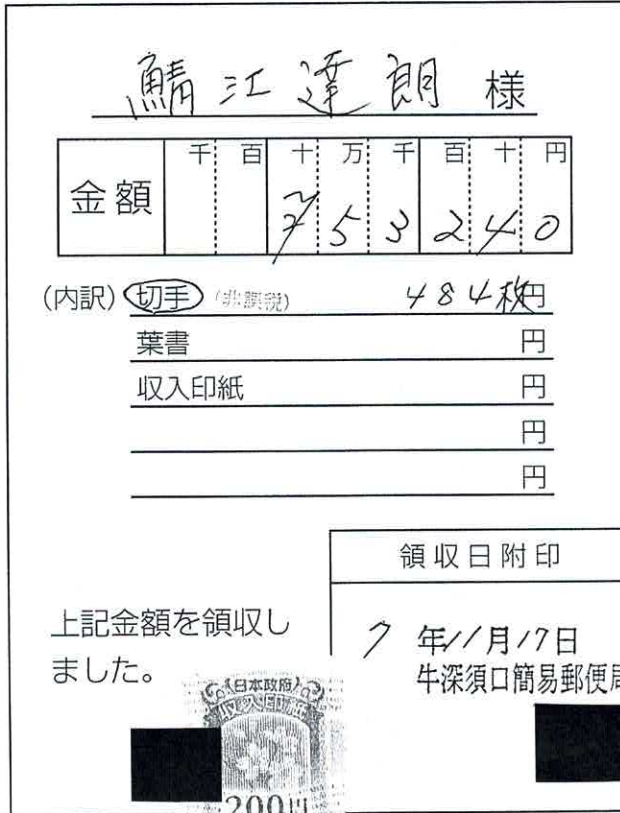 鯖江達朗 様
千 百 十 万 千 百 十 円
金額 ¥ 5 3 2 4 0
(内訳) 切手 (非課税) 484枚円
葉書 円
収入印紙 円
円
円
領収日附印
上記金額を領収し
ました。
7 年11月17日
牛深須口簡易郵便局
日本政府
収入印紙
200円